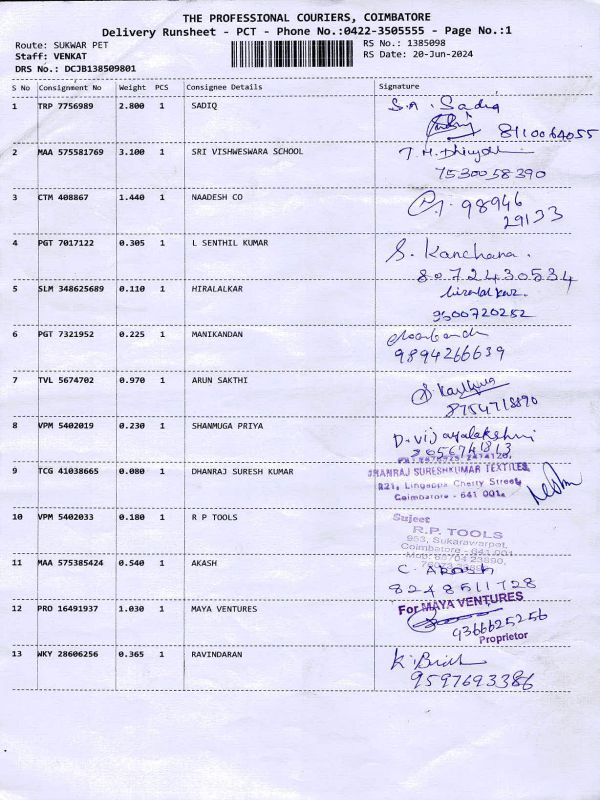 THE PROFESSIONAL COURIERS, COIMBATORE
Delivery Runsheet - PCT - Phone No.:0422-3505555 - Page No.:1
Route: SUKWAR PET
Staff: VENKAT
DRS No.: DCJB138509801
RS No.: 1385098
RS Date: 20-Jun-2024
S No Consignment No Weight PCS Consignee Details Signature
1 TRP 7756989 2.800 1 SADIQ S.A. Sadiq
8110064055
2 MAA 575581769 3.100 1 SRI VISHWESWARA SCHOOL T.M.
7530058390
3 CTM 408867 1.440 1 NAADESH CO 98946
29133
4 PGT 7017122 0.305 1 L SENTHIL KUMAR S. Kanchana.
8072430534
5 SLM 348625689 0.110 1 HIRALALKAR hiralalkar.
9500720252
6 PGT 7321952 0.225 1 MANIKANDAN
9894266639
7 TVL 5674702 0.970 1 ARUN SAKTHI
8754718890
8 VPM 5402019 0.230 1 SHANMUGA PRIYA D. Vijayalakshmi
9 TCG 41038665 0.080 1 DHANRAJ SURESH KUMAR DHANRAJ SURESHKUMAR TEXTILES,
R21, Lingappa Chetty Street,
Coimbatore - 641 001.
10 VPM 5402033 0.180 1 R P TOOLS Sujeet
R.P. TOOLS
953, Sukarawarpet,
Coimbatore - 641 001
11 MAA 575385424 0.540 1 AKASH C. Akash
8248511728
12 PRO 16491937 1.030 1 MAYA VENTURES For MAYA VENTURES
9366625256
Proprietor
13 WKY 28606256 0.365 1 RAVINDARAN K.
9597693386